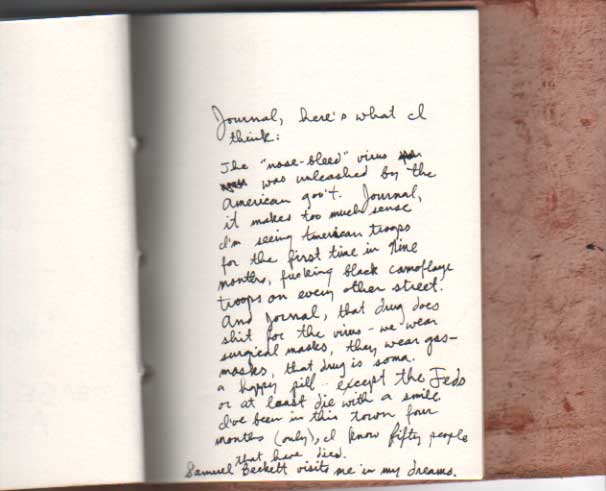 Journal, here's what I
think:
The "nose-bleed" virus
was unleashed by the
American gov't. Journal,
it makes too much sense
I'm seeing American troops
for the first time in nine
months, fucking black camoflage
troops on every other street.
And Jornal, that drug does
shit for the virus - we wear
surgical masks, they wear gas-
masks, that drug is soma.
a happy pill - except the Feds
or at least die with a smile.
I've been in this town four
months (only), I know fifty people
that have died.
Samuel Beckett visits me in my dreams.